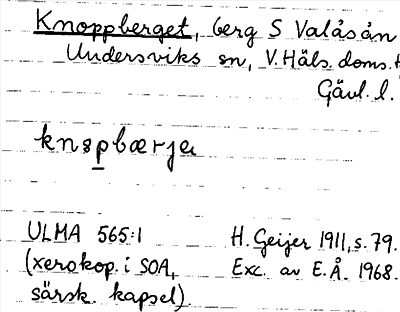 Knoppberget, berg S Valåsån
Undersviks sn, V. Häls. doms.
Gävl. l.
knɔpbærjɐ
ULMA 565:1 H. Geijer 1911, s. 79.
(xerokop. i SOA, Exc. av E.Å. 1968.
särsk. kapsel).